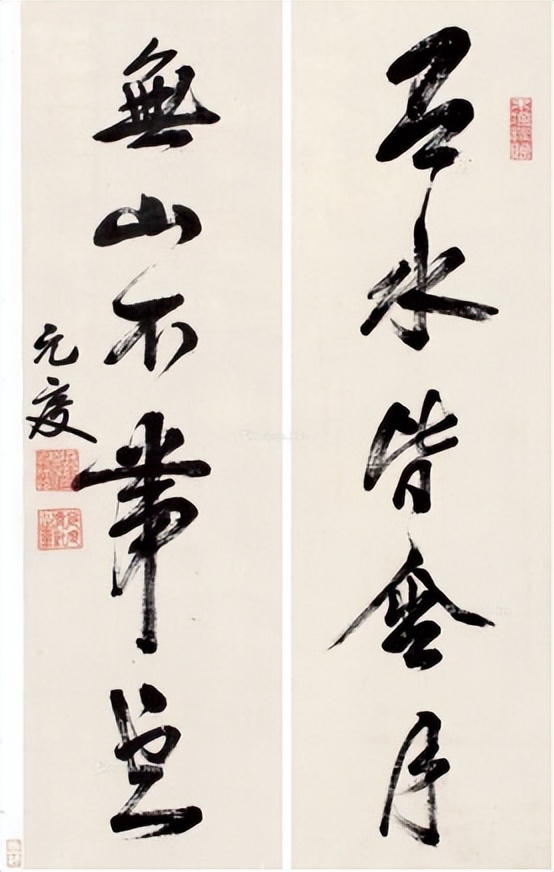 有水皆含月
無山不帶雲
元度